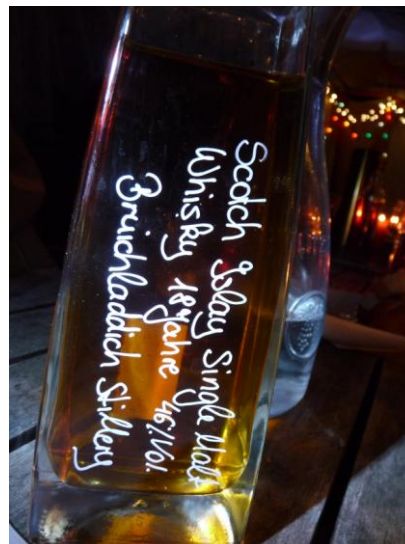 Scotch Islay Single Malt
Whisky 18 Jahre 46% Vol.
Bruichladdich Stillery